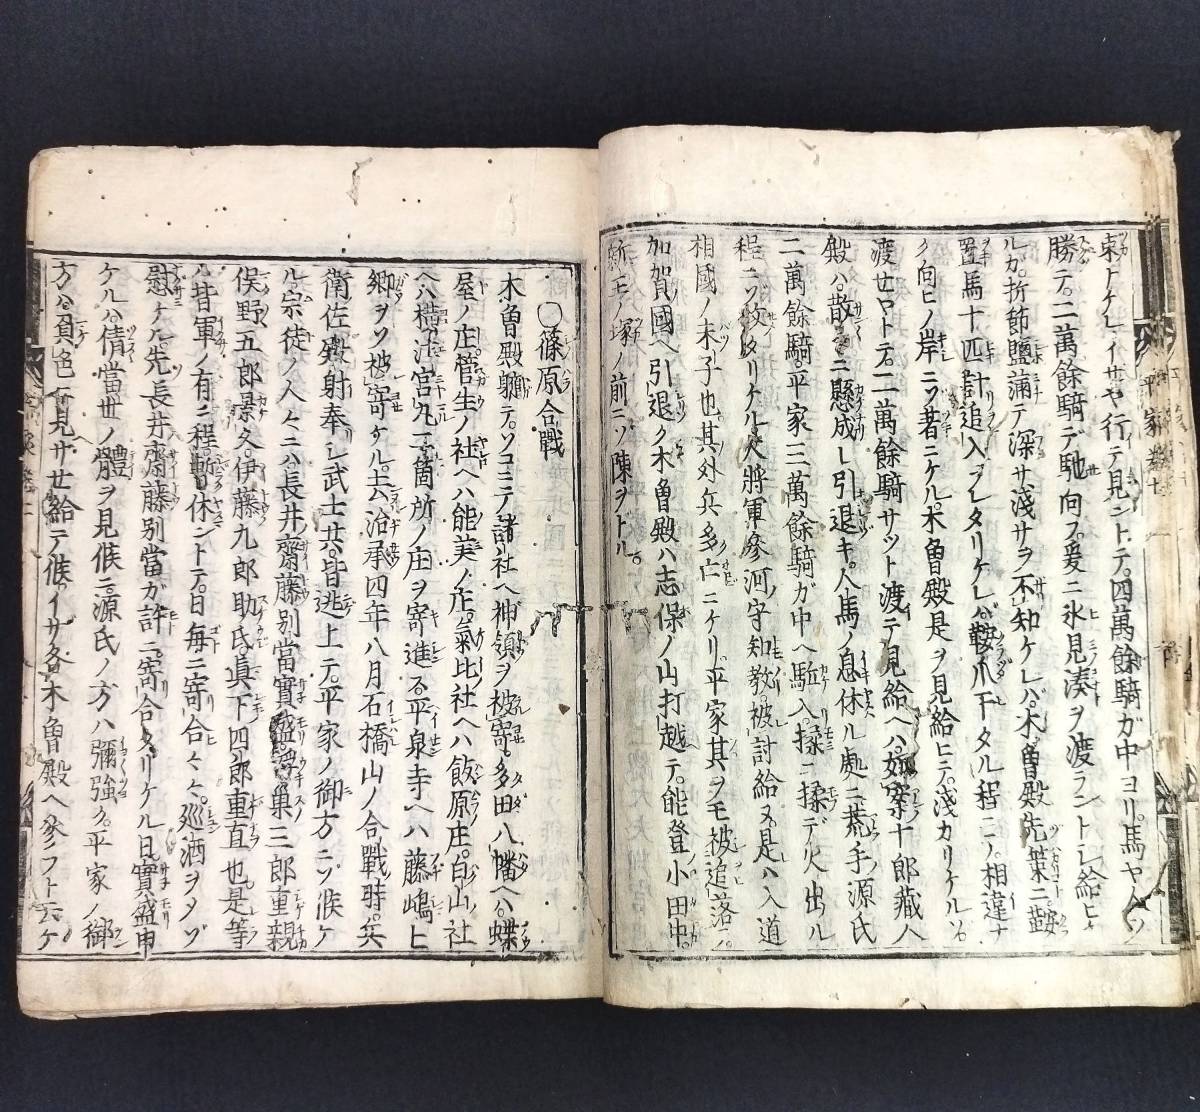 束ナケレ。イサヤ行テ見ントテ。四萬餘騎ガ中ヨリ。馬ヤ人ヲソ
勝テ。二萬餘騎デ馳向フ。爰ニ氷見湊ヲ渡ラントシ給ヒケ
ルカ。折節鹽滿テ深サ淺サヲ不知ケレバ。木曽殿先葉ニ鞍
置馬十匹計追入ラレタリケレバ。鞍爪ヒタル程ニソ。相違ナ
ク向ヒノ岸ニソ著ニケル。木曽殿是ヲ見給ヒテ。淺カリケルソ。
渡セヤトテ。二萬餘騎サツト渡テ見給ヘハ。如案十郎藏人
殿ハ。散〻ニ懸成レ引退キ。人馬ノ息休ル処ニ。荒手源氏
二萬餘騎。平家三萬餘騎ガ中ヘ駈入。揉ニ揉デ火出ル
程ニソ攻タリケル。大將軍參河守知教被討給ヌ。是ハ入道
相國ノ末子也。其外兵多亡ニケリ。平家其ヲモ被追落テ。
加賀國ヘ引退ク。木曽殿ハ志保ノ山打越テ。能登小田中。
新王ノ塚ノ前ニソ陳ヲトル。
〇篠原合戰
木曽殿軈テ。ソコニテ諸社ヘ神領ヲ被寄。多田八幡ヘハ。蝶
屋ノ庄。菅生ノ社ヘハ能美ノ庄。氣比社ヘハ飯原庄。白山社
ヘハ横江宮丸二箇所ノ庄ヲ寄進ス。平泉寺ヘハ藤嶋七
郷ヲソ被寄ケル。去治承四年八月石橋山ノ合戰時。兵
衛佐殿射奉シ武士共。皆逃上テ。平家ノ御方ニソ候ケ
ル。宗徒ノ人々ニハ長井齋藤別當實盛。浮巣三郎重親
俣野五郎景久。伊藤九郎助氏。眞下四郎重直也。是等
ハ昔軍ノ有ニ程。暫休ントテ。日毎ニ寄合々々。巡酒ヲソ
慰ケル。先長井齋藤別當ガ許ニ寄合タリケル日。實盛申
ケルハ倩當世ノ體ヲ見候ニ。源氏ノ方ハ彌強ク。平家ノ御
方ハ負色ニ見サセ給テ候。イサ各木曽殿ヘ參フトテケ